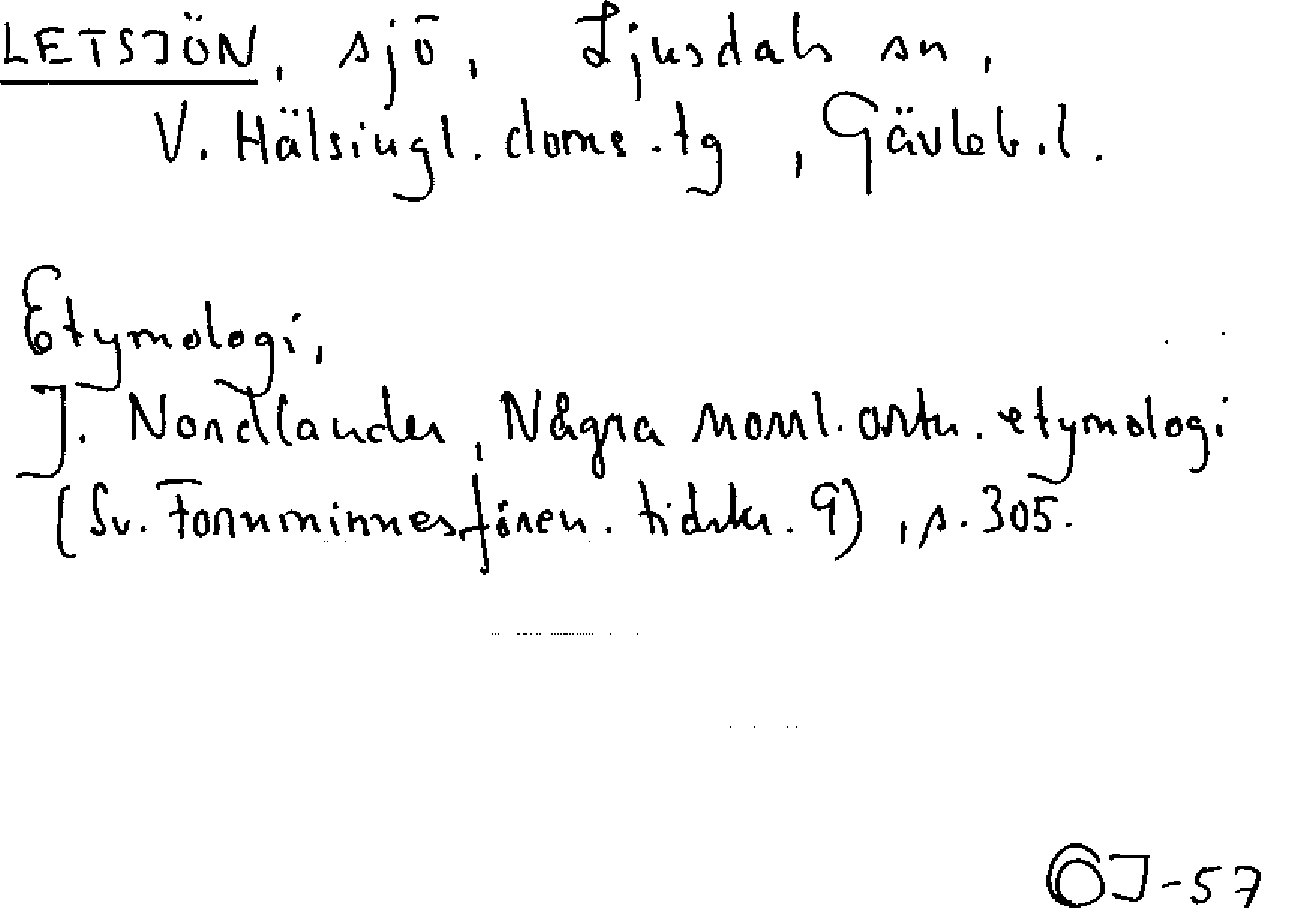 LETSJÖN, sjö, Ljusdals sn,
V. Hälsingl. doms.tg, Gävleb.l.
Etymologi,
J. Nordlander, Några norrl. ortn. etymologi
(Sv. Fornminnesfören. tidskr. 9), s. 305.
OJ-57